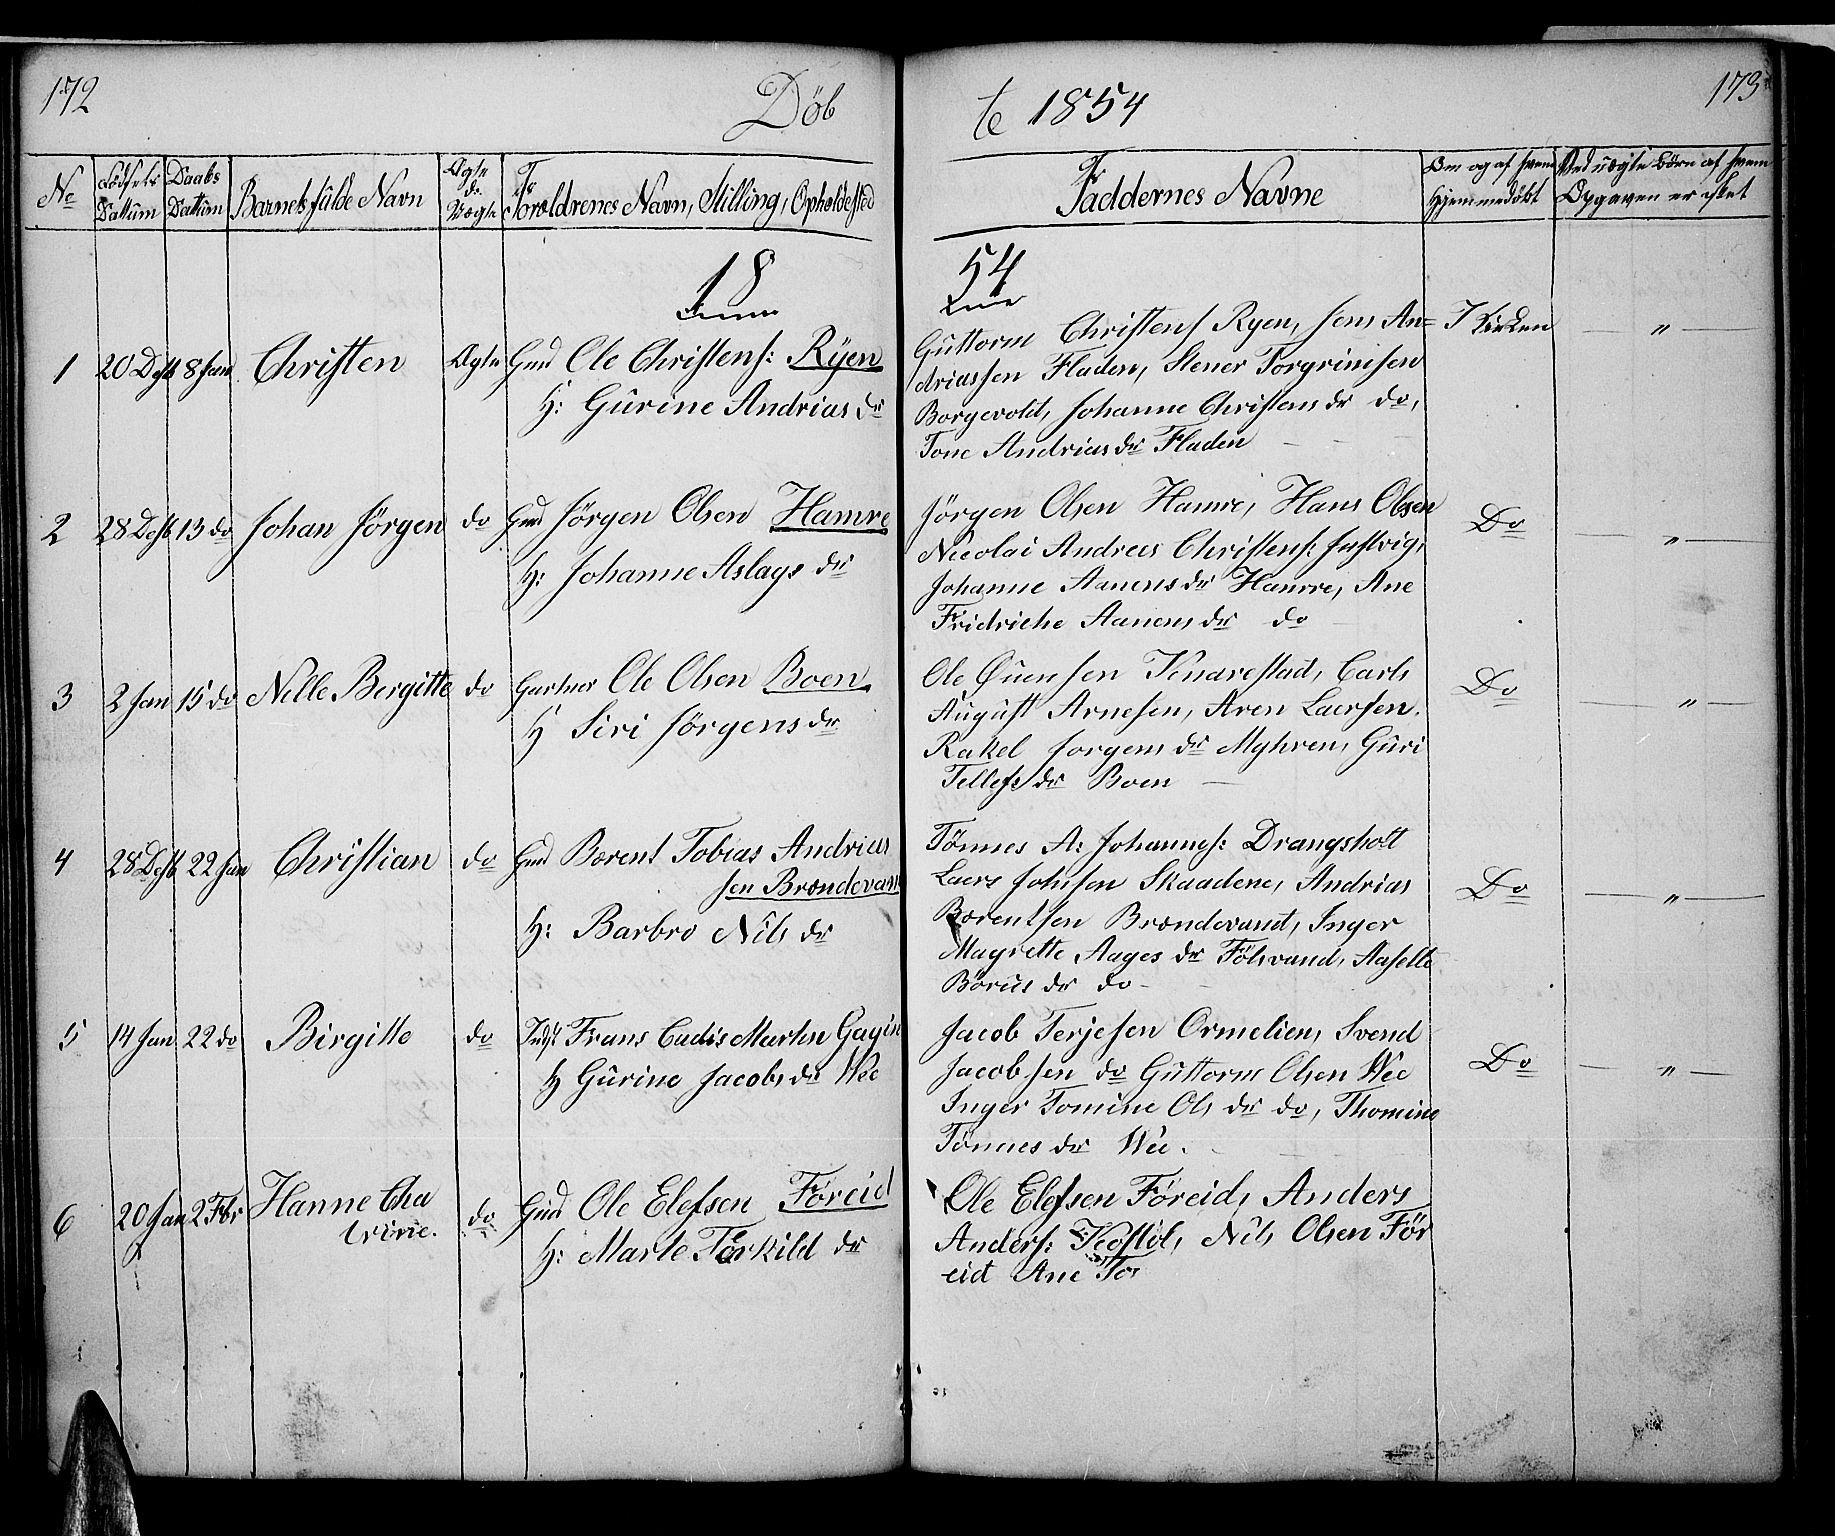 172
Döb
te 1854
173
No
Födsels Dattum
Daabs Dattum
Barnets fulde Navn
Ægte do Uægte
Forældrenes Navn, Stilling, Opholdsted
Faddernes Navne
Om og af hvem Hjemmedöbt
Ved uægte Börn af hvem Opgaven er sket
18
54
1 20 Desb 8 Jan Christen Ægte Gmd Ole Christens: Ryen
H: Gurine Andrias dr
Guttorm Christens Ryen, Jens An=
driassen Fladen, Stener Torgrimsen
Borgevold, Johanne Christens dr do,
Tone Andrias dr Fladen
I Kirken — " —
2 28 Desb 13 do Johan Jörgen do Gmd Jörgen Olsen Hamre
H: Johanne Aslags dr
Jörgen Olsen Hamre, Hans Olsen
Nicolai Andreas Christens: Justvig,
Johanne Aanens dr Hamre, Ane
Fridriche Aanens dr do
Do — " —
3 2 Jan 15 do Nille Bergitte do Gartner Ole Olsen Boen
H Siri Jörgens dr
Ole Ouensen Kenarestad, Carl
August Arnesen, Aren Laersen.
Rakel Jorgens dr Myhren, Guri
Tellefs dr Boen
Do — " —
4 28 Desb 22 Jan Christian do Gmd Bærent Tobias Andrias
sen Brændevand
H: Barbro Nils dr
Tönnes A: Johannes: Drangsholt
Laers Johnsen Skaadene, Andrias
Bærentsen Brændevand, Inger
Magrette Aages dr Fölsvand, Aaselle
Börius dr do
Do — " —
5 14 Jan 22 do Birgitte do Indst Frans Martin
H Gurine Jacobs dr Wee
Jacob Terjesen Ormelien, Svend
Jacobsen do Guttorm Olsen Wee
Inger Tomine Ols dr do, Thomine
Tönnes dr Wee.
Do — " —
6 20 Jan 2 Febr Hanne Cha
trine. do Gmd Ole Elefsen Föreid
H: Marte Torkild dr
Ole Elefsen Föreid, Anders
Anders: Kostöl, Nils Olsen För
eid Ane Tor